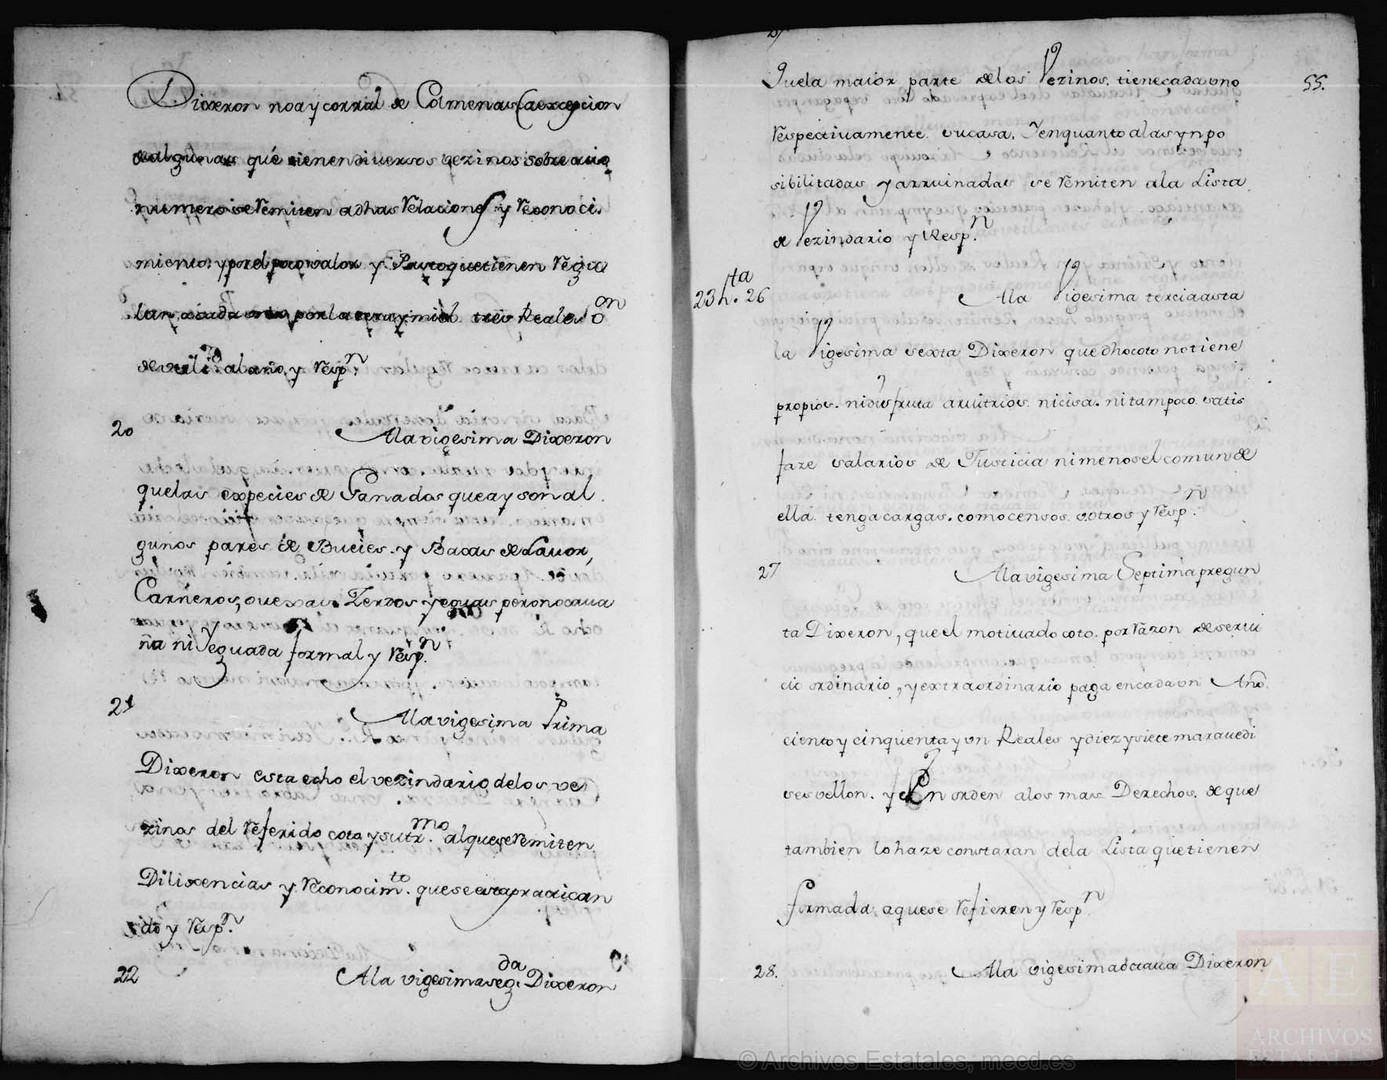 Dixeron no ay corral de Colmenas (a excepcion
de algunas que tienen diuersos vezinos sobre cuio
numero se Remiten a dhas Relaciones y Reconoci-
miento, y por el poco valor y Pasto que tienen Regu
lan a cada una por la zera y miel tres Reales
de vellon al año, y Resp.n
20 A la vigesima Dixeron
que las expecies de Ganados que ay son al
gunos pares de Bueies y Bacas de Lauor,
Carneros, ouexas, Zerdos y eguas pero no caua
ña ni Yeguada formal y Resp.n
21 A la vigesima Prima
Dixeron esta echo el vezindario de los ve
zinos del Referido coto y su tr.mo al que se Remiten
Dilixencias y Reconocim.to que se esta practican
do y Resp.n
22 A la vigesima seg.da Dixeron
55.
Que la maior parte de los Vezinos, tiene cada uno
Respectiuamente su casa, Y en quanto a las ynpo
sibilitadas y arruinadas se Remiten a la Lista
de Vezindario y Resp.n
23 h.ta 26 A la Vigesima tercia asta
la Vigesima sexta Dixeron que dho coto no tiene
propios, ni disfruta aruitrios, ni sisa, ni tampoco satis
faze salarios de Justicia ni menos el comun de
ella tenga cargas, como censos, v otros y Resp.n
27 A la vigesima Septima pregun
ta Dixeron, que el motiuado coto, por Razon de serui
cio ordinario, y extraordinario paga en cada un Año
ciento y cinquenta y un Reales y diez y siete marauedi
ses vellon, y En orden a los mas Derechos, de que
tambien lo haze constaran de la Lista que tienen
formada, a que se Refieren y Resp.n
28. A la vigesima octaua Dixeron
© Archivos Estatales, mecd.es
AE
ARCHIVOS
ESTATALES